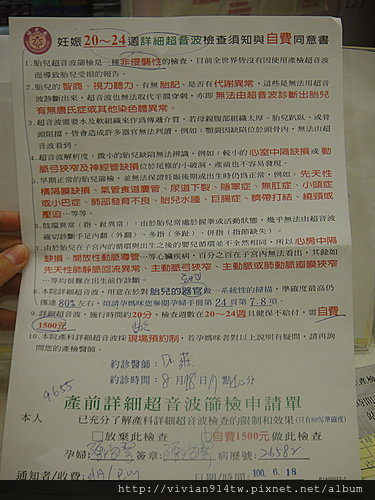 妊娠20~24週詳細超音波檢查須知與自費同意書
1.胎兒超音波篩檢是一種非侵襲性的檢查，目前全世界皆沒有因使用產檢超音波
而導致胎兒受損的報告。
2.胎兒的智商、視力聽力、有無胎記、是否有代謝異常，這些是無法用超音
波診斷出來，超音波也無法取代羊膜穿刺，亦即無法由超音波診斷出胎兒
有無唐氏症或其他染色體異常。
3.超音波需要水及軟組織來作為傳遞介質，若母親腹部組織太厚、胎兒趴臥、或骨
頭阻擋，皆會造成許多器官無法判讀，例如：顎裂因缺陷位於頭骨內，無法由超
音波看到。
4.超音波解析度：微小的胎兒缺陷無法辨識，例如：較小的心室中隔缺損或動
脈弓狹窄及神經管缺損位於尾椎的小破洞，產前也不容易發現。
5.早期正常的胎兒篩檢，並無法保證妊娠後期或出生時仍為正常，例如：先天性
橫隔膜缺損、氣管食道瘻管、尿道下裂、隱睪症、無肛症、小頭症
或小巴症、肺部發育不良、胎兒水腫、巨腸症、臍帶打結、繞頸或
壓迫…等等。
6.肢端異常(指、趾異常)：由於胎兒常處於握拳或活動狀態，幾乎無法由超音波
確切診斷手足內翻(外翻)、多指(多趾)、併指(指節缺失)。
7.由於胎兒在子宮內的循環與出生之後的嬰兒循環並不全然相同，所以心房中隔
缺損、開放性動脈導管…等心臟疾病，百分之百在子宮內無法看出，其餘如
先天性肺靜脈回流異常、主動脈弓狹窄、主動脈或肺動脈瓣膜狹窄
…等均很難在出生前作診斷。
8.本院詳細超音波，用意在於對胎兒的器官做一系統性的掃描，準確度最高仍
僅達80%左右，煩請孕媽咪您參閱孕婦手冊第24頁第7.8項。
9.詳細超音波，施行時間約20分，檢查週數在20~24週且健保不給付，需自費
1500元
10.本院產科詳細超音波採現場預約制，若孕媽咪對於以上說明有疑問，請再詢
問您的產檢醫師。
約診醫師：Dr.莊
約診時間：8月18日
9655
產前詳細超音波篩檢申請單
本人 已充分了解產科詳細超音波檢查的限制和效果(只有80%準確度)
□放棄此檢查 □自費1500元做此檢查
孕婦： 簽章： 病歷號：26582
通知者/收費： 日期/時間：100.6.18
http://vivian914tw.pixnet.net/album